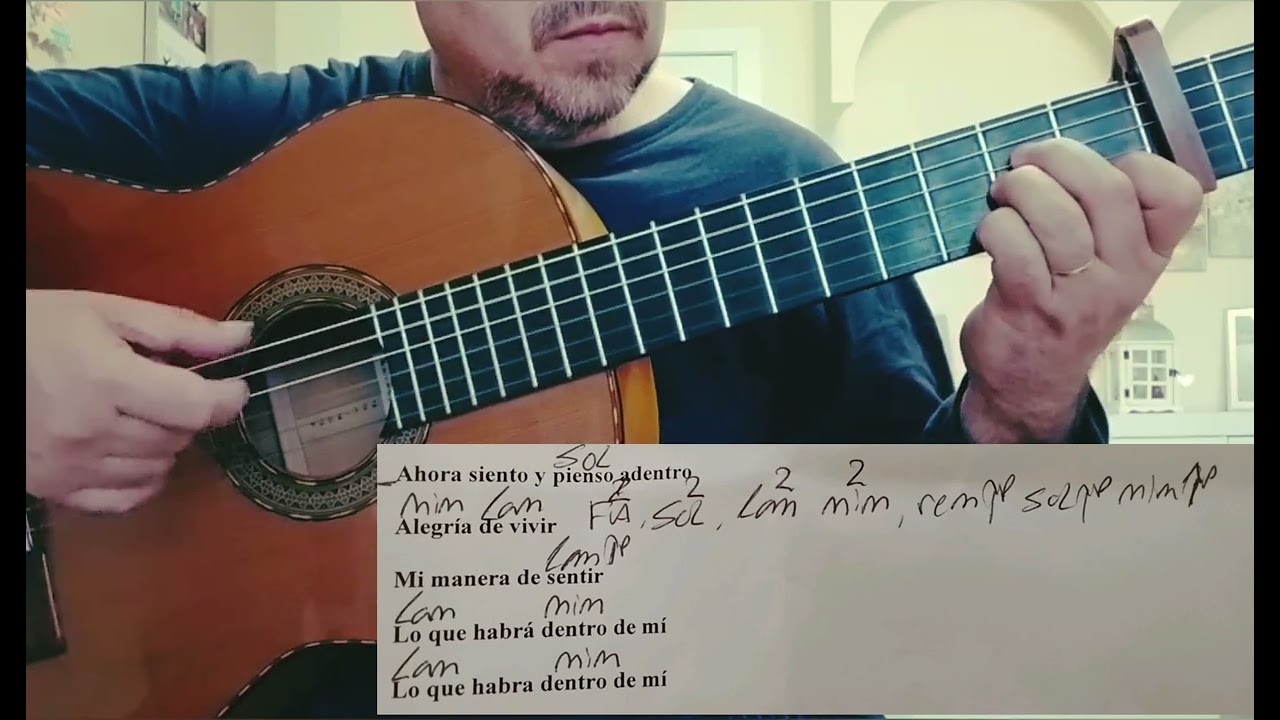 SOL
Ahora siento y pienso adentro
mim Lam FA 2, SOL 2, Lam 2 mim 2, rem SOL mim
Alegría de vivir
Lam
Mi manera de sentir
Lam mim
Lo que habrá dentro de mí
Lam mim
Lo que habra dentro de mí